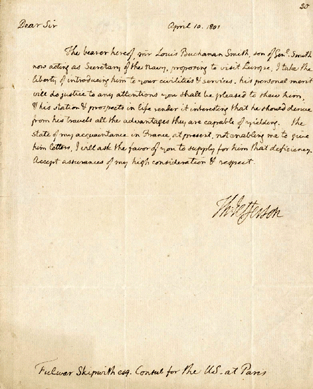 20
Dear Sir April 10. 1801
The bearer hereof mr Louis Buchanan Smith, son of Genl. Smith
now acting as Secretary of the Navy, proposing to visit Europe, I take the
liberty of introducing him to your civilities & services. his personal merit
will do justice to any attentions you shall be pleased to shew him,
& his station & prospects in life render it interesting that he should derive
from his travels all the advantages they are capable of yielding. the
state of my acquaintance in France at present, not enabling me to give
him letters, I will ask the favor of you to supply for him that deficiency.
Accept assurances of my high consideration & respect.
Th: Jefferson
Fulwar Skipwith esq. Consul for the US. at Paris